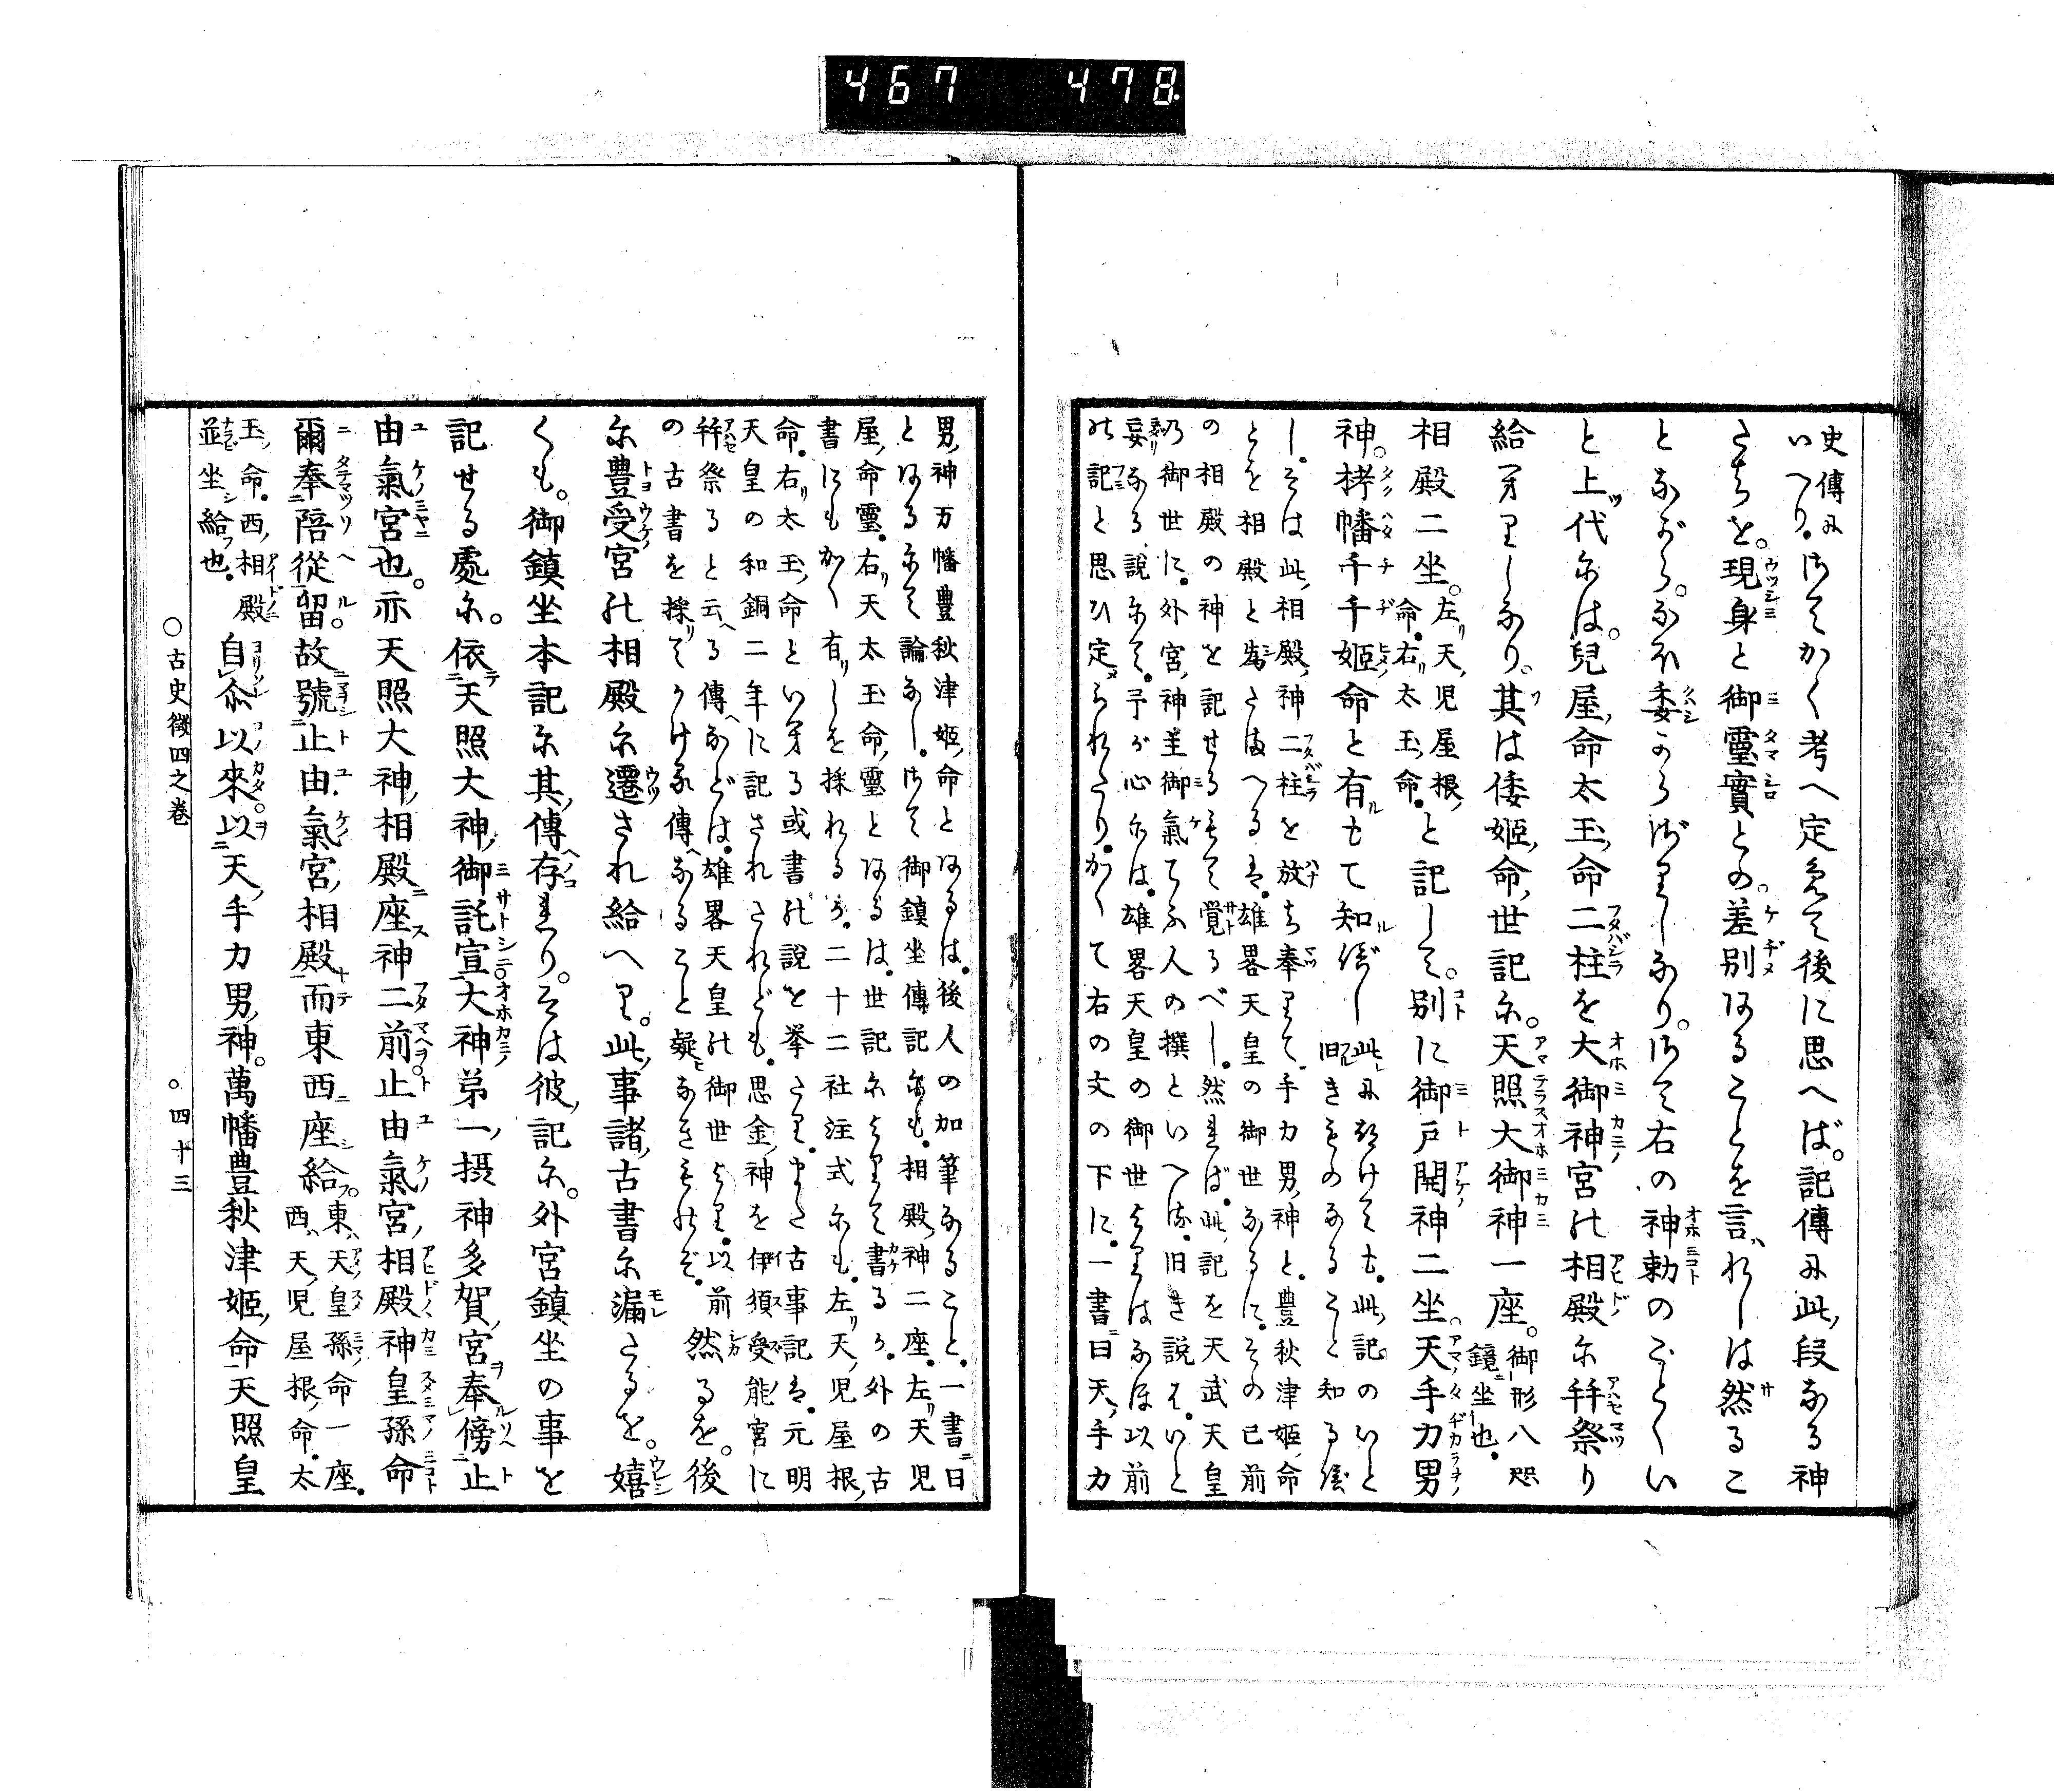 467 478
史傳に
いへり。さてかく考へ定めて後に思へば。記傳に此段なる神
たちを。現身と御靈實との。差別あることを言れしは然るこ
とながら。なほ委からざりしなり。さて右の神勅のごとくい
と上代には。兒屋命太玉命二柱を大御神宮の相殿に幷祭り
給ひしなり。其は倭姫命世記に。天照大御神一座。御形八咫
鏡坐也。
相殿二坐。左天児屋根
命。右太玉命。と記して。別に御戸開神二坐。天手力男
神。栲幡千千姫命と有もて知べし 此に引けても。此記のいと
旧きもののなること知る徴
し。そは此相殿神二柱を放ち奉りて。手力男神と。豊秋津姫命
とを相殿と為たまへるは。雄畧天皇の御世なるに。その已前
の相殿の神を記せるもて覚るべし。然れば。此記を天武天皇
乃御世に。外宮神主御氣てふ人の撰といへる。旧き説は。いと
妄なる説にて。予が心には。雄畧天皇の御世よりはなほ以前
の記と思ひ定められたり。かくて右の文の下に。一書曰天手力
男神万幡豊秋津姫命とあるは。後人の加筆なること。一書曰
とあるにて論なし。さて御鎮坐傳記にも。相殿神二座。左天児
屋命靈。右天太玉命靈とあるは。世記によりて書るか。外の古
書にもかく有しを採れるか。二十二社注式にも。左天児屋根
命。右太玉命といへる或書の説を挙たり。また古事記は。元明
天皇の和銅二年に記されされども。思金神を伊須受能宮に
幷祭ると云る傳などは。雄畧天皇の御世より。以前
の古書を採てうける傳なること疑なきものぞ。然るを。後
に豊受宮の相殿に遷され給へり。此事諸古書に漏たるを。嬉
くも。御鎮坐本記に其傳存れり。そは彼記に。外宮鎮坐の事を
記せる處に。依天照大神御託宣大神弟一摂神多賀宮奉傍止
由氣宮也。亦天照大神相殿座神二前止由氣宮相殿神皇孫命
爾奉陪從留。故號止由氣宮相殿而東西座給。東天皇孫命一座。
西天児屋根命。太
玉命。西相殿
並坐給也。自尒以來以天手力男神。萬幡豊秋津姫命天照皇
○古史徴四之巻
○四十三